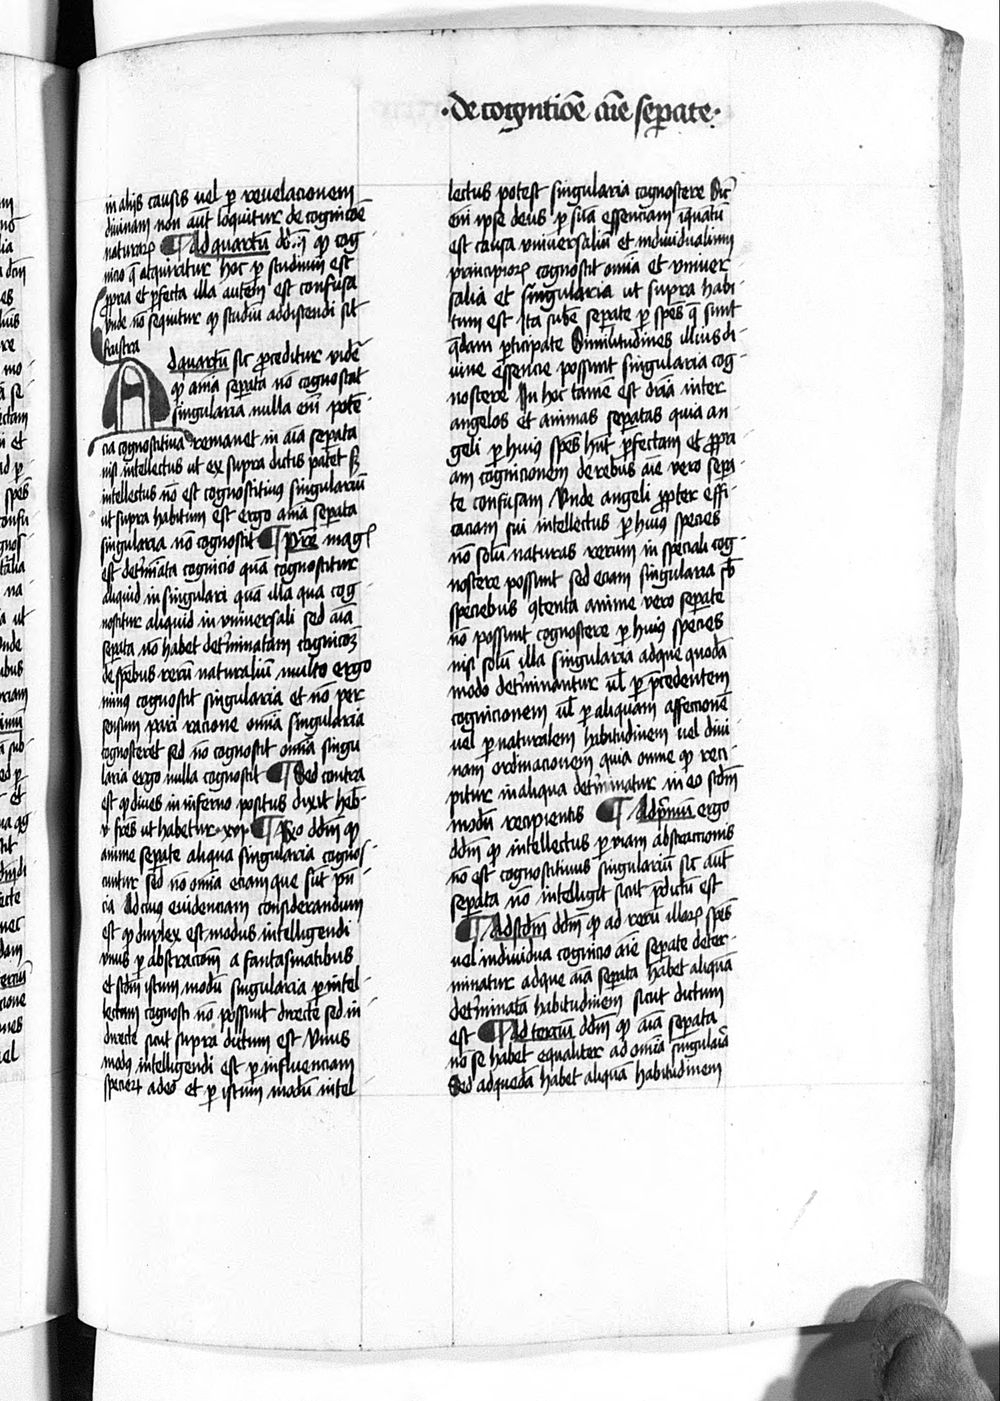 ·de cognitiōe aīe seꝑate·
in alijs causis uel ꝑ reuelacionem
diuinam non aut̄ loquitur de cognicōe
naturaꝝ ¶ Ad quartū ddꝫ ꝙ cog
nicio q̄ acquiratur hoc ꝑ studium est
ꝓpria et ꝑfecta illa autem est confusa
vnde nō sequitur ꝙ studiū addiscendi sit
frustra
Ad quartū sic ꝓceditur vidēr
ꝙ aīma seꝑata nō cognoscat
singularia nulla enī potē
cia cognoscitiua remanet in aīa seꝑata
nisi intellectus ut ex supra dictis patet Sꝫ
intellectus nō est cognoscitiuꝰ singulariū
ut supra habitum est ergo aīma seꝑata
singularia nō cognoscit ¶ Pret̄e magꝭ
est det̉minata cognicio qua cognoscitur
aliquid in singulari quā illa qua cog
noscitur aliquid in vniuersali sed aīa
seꝑata nō habet det̉minatam cognicōꝫ
de spēbus rerū naturaliū multo ergo
minꝰ cognoscit singularia et nō per
sensum pari racione omīa singularia
cognosceret sed nō cognoscit omīa singu
laria ergo nulla cognoscit ¶ Sed contra
est ꝙ diues in inferno positus dixit heb̄
v fr̄es ut habetur xvi ¶ R̄o dd̄m ꝙ
anime seꝑate aliqua singularia cognos
cuntur sed nō omīa eciam que sūt pn̄
cia Ad cuiꝰ euidenciam considerandum
est ꝙ duplex est modus intelligendi
vnus ꝑ abstraccōm a fantasmatibus
et scd̄m istum modū singularia ꝑ intel
lectum cognosci nō possunt directe sed in
directe sicut supra dictum est Vnus
modꝰ intelligendi est ꝑ influenciam
specieꝝ adeo et ꝑ istum modū intel
lectus potest singularia cognoscere Sic̄
enī ipse deus ꝑ suā essenciam inquatū
est causa vniuersaliū et indiuidualium
principioꝝ cognoscit omīa et vniuer
salia et singularia ut supra habi
tum est Ita sube seꝑate ꝑ spēs q̄ sunt
q̄dam ꝑticipate similitudines illius di
uine essencie possunt singularia cog
noscere In hoc tamē est dr̄ia inter
angelos et animas seꝑatas quia an
geli ꝑ huiꝰ spēs hn̄t ꝑfectam et ꝓpri
am cognicionem de rebus aīe vero seꝑa
te confusam Vnde angeli ꝓpter effi
caciam sui intellectus ꝑ huiꝰ species
nō solū naturas rerum in speciali cog
noscere possunt sed eciam singularia sb̄
speciebus 9tenta anime vero seꝑate
nō possunt cognoscere ꝑ huiꝰ species
nisi solū illa singularia ad que quodā
modo det̉minantur ul̄ ꝑ p̄cedentem
cognicionem ul̄ ꝑ aliquam affeccionē
uel ꝑ naturalem habitudinem uel diui
nam ordinacionem quia omne ꝙ reci
pitur in aliqua det̉minatur in eo scd̄m
modū recipientis ¶ Ad p̄mū ergo
dd̄m ꝙ intellectus ꝑ viam abstraccionis
nō est cognoscitiuus singulariū sic aut̄
seꝑata nō intelligit sicut p̄dictū est
¶ Ad scd̄m dd̄m ꝙ ad rerū illaꝝ spēs
uel indiuidua cognicio aīe seꝑate deter
minatur ad que aīa seꝑata habet aliquā
det̉minatā habitudinem sicut dictum
est ¶ Ad terciū dd̄m ꝙ aīa seꝑata
nō se habet equaliter ad omīa singularia
Sed ad quedā habet aliquā habitudinem